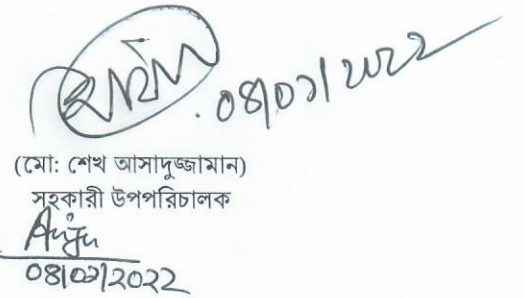 ০৪/০১/২০২২
(মো: শেখ আসাদুজ্জামান)
সহকারী উপপরিচালক
০৪/০১/২০২২